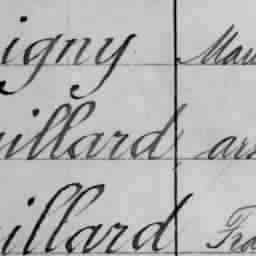 igny Mau
illard ars
illard Fra